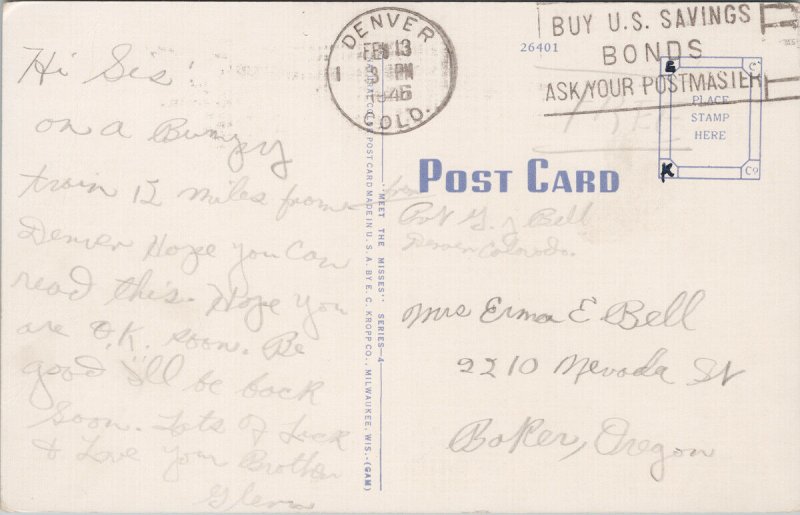 Hi Sis!
on a Bumpy
train 12 miles from
Denver Hope you can
read this. Hope you
are O.K. soon. Be
good I'll be back
soon. Lots of Luck
& Love your Brother
Glenn
DENVER
FEB 13
3 PM
1946
COLO.
BUY U.S. SAVINGS
BONDS
ASK YOUR POSTMASTER
26401
FREE
E C
PLACE
STAMP
HERE
K Co
POST CARD
"MEET THE MISSES" SERIES-4
POST CARD MADE IN U.S.A. BY E. C. KROPP CO., MILWAUKEE, WIS.-(GAM)
from
Pvt G. J Bell
Denver Colorado.
Mrs Erma E Bell
2210 Nevada St
Baker, Oregon